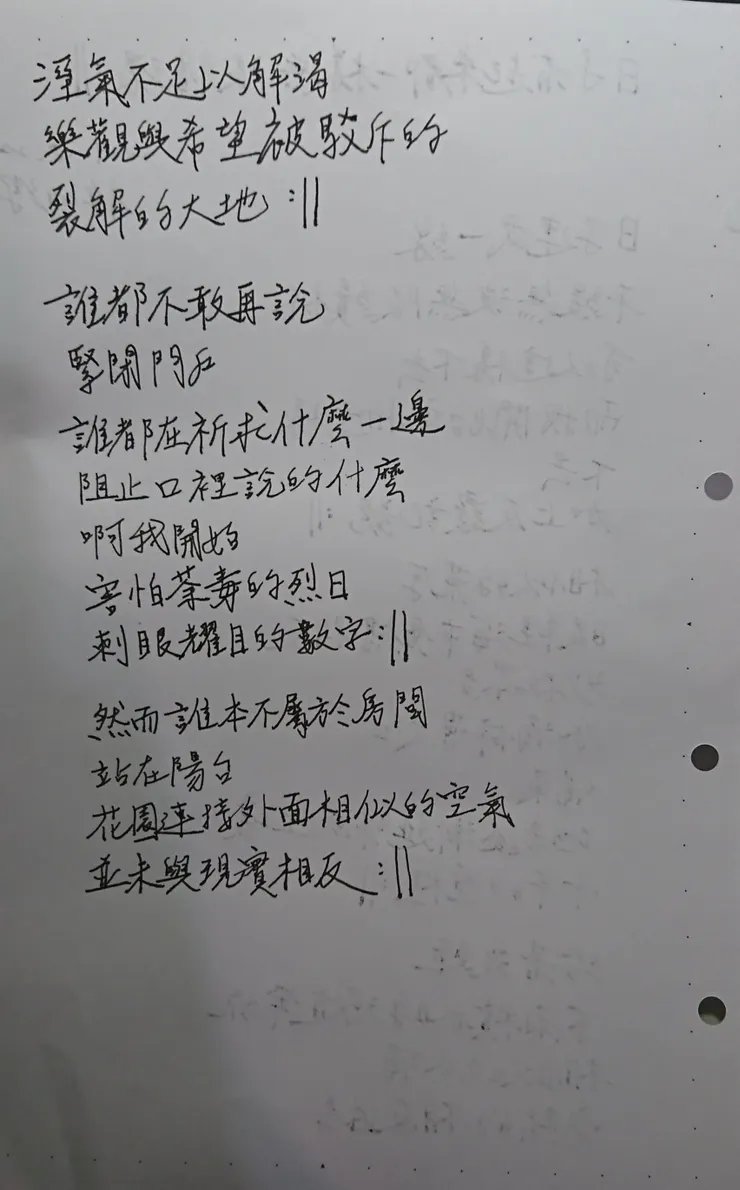 溼氣不足以解渴
樂觀與希望被駁斥的
裂解的大地:||
誰都不敢再說
緊閉門后
誰都在祈求什麼一邊
阻止口裡說的什麼
啊我開始
害怕荼毒的烈日
刺眼耀目的數字:||
然而誰本不屬於房間
站在陽台
花園連接外面相似的空氣
並未與現實相反:||